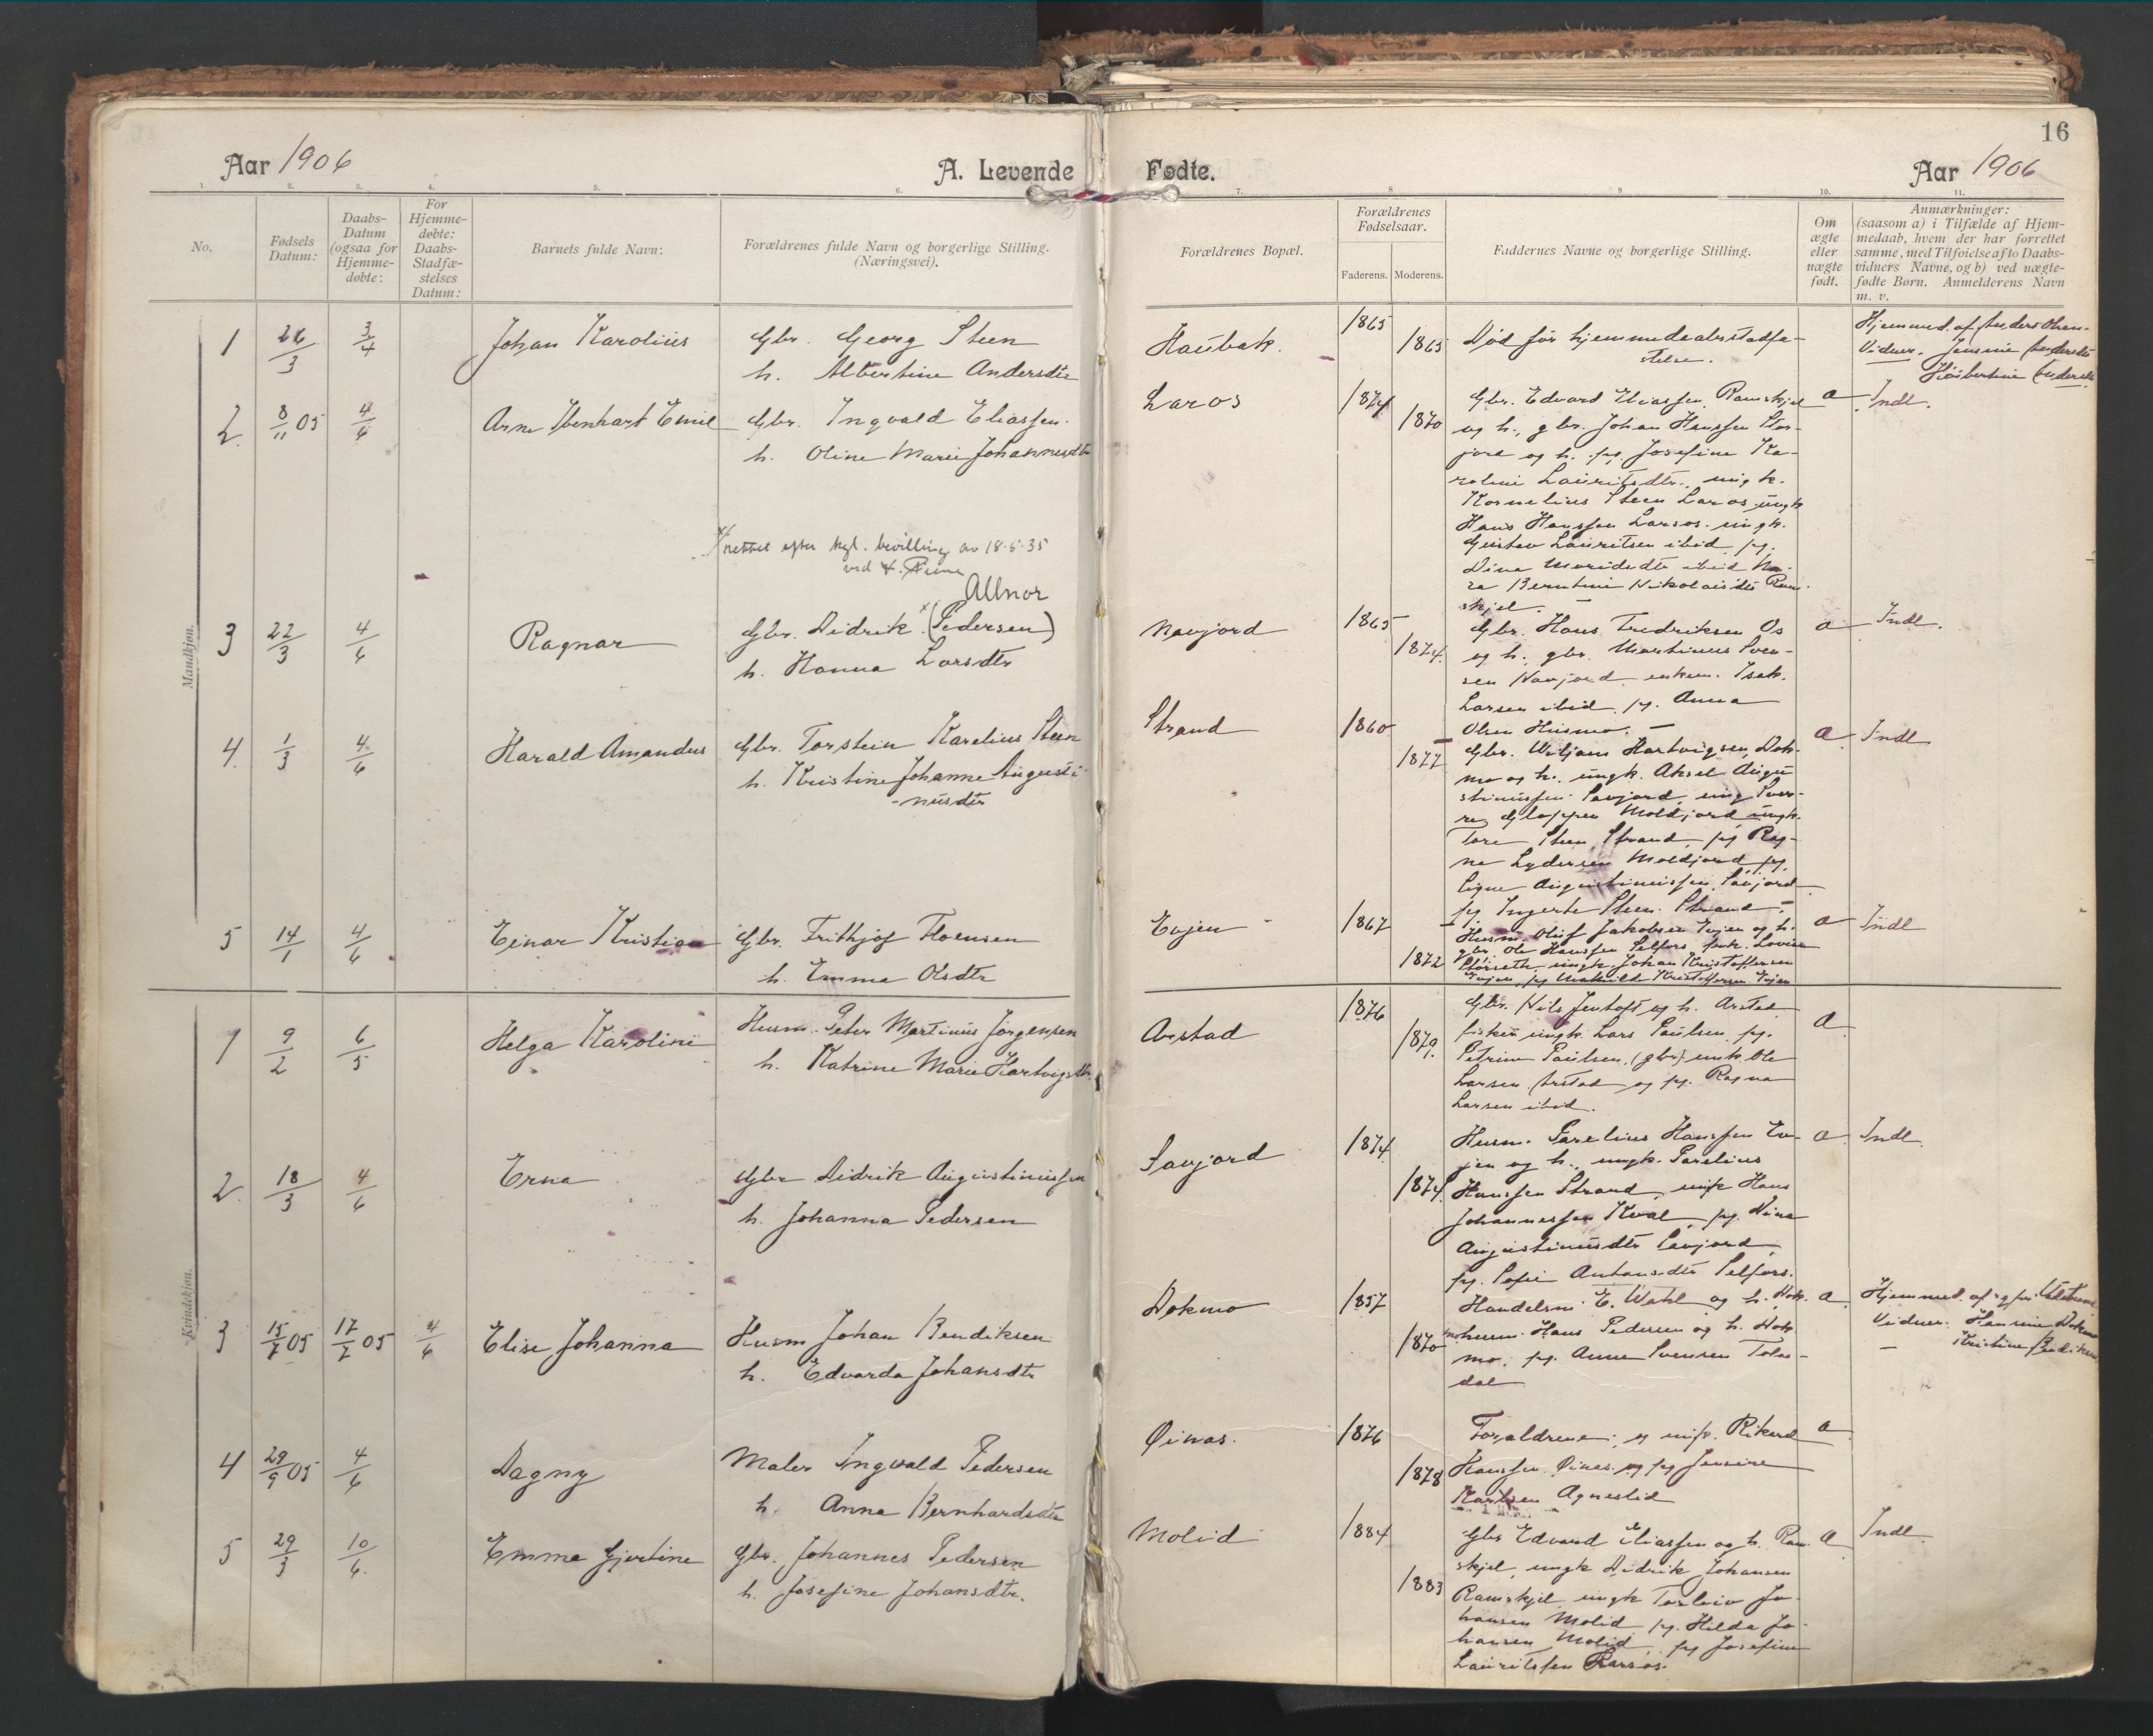 16
Aar 1906
A. Levende
Fødte.
Aar 1906
1. 2. 3. 4. 5. 6. 7. 8 9 10. 11.
No.
Fødsels Datum:
Daabs-Datum (ogsaa for Hjemme-døbte:
For Hjemme-døbte: Daabs-Stadfæ-stelses Datum:
Barnets fulde Navn:
Forældrenes fulde Navn og borgerlige Stilling.
(Næringsvei).
Forældrenes Bopæl.
Forældrenes Fødselsaar.
Faderens. Moderens.
Faddernes Navne og borgerlige Stilling.
Om ægte eller nægte født.
Anmærkninger:
(saasom a) i Tilfælde af Hjem-
medaab, hvem der har forrettet
samme, med Tilføielse af to Daabs-
vidners Navne, og b) ved nægte-
fødte Børn. Anmelderens Navn
m. v.
Mandkjøn.
1 26/3 3/4 Johan Karolius Gbr. Georg Steen
h. Albertine Andersdtr
Haubak. 1865 1865
Død før hjemmedaabsstadfæ-
stelse.
Hjemmed. af Anders Olsen
Vidner. Jensine Andersdtr
2 8/11 05 4/6 Arne Ibenhart Emil Gbr. Ingvald Eliassen.
h. Oline Marie Johannesdtr
Laros 1874 1870
Gbr. Edvard Eliassen Ramskjel
og h., gbr. Johan Hanssen Stor-
jord og h. pg. Josefine Ka-
roline Lauritsdtr., ungk.
Kornelius Steen Laros ungk
Hans Hanssen Larsos. ungk.
Gustav Lauritsen ibid pg.
ra Berntine Nikolaisdtr Ram-
skjel.
a Indl.
rettet efter kgl. bevilling av 18-5-35
Allnor
3 22/3 4/6 Ragnar Gbr. Didrik x (Pedersen)
h. Hanna Larsdtr
Navjord 1865 1874.
Gbr. Hans Fredriksen Os
og h., gbr. Martinus Sven-
sen Navjord enkem. Isak
Larsen ibid. pg. Anna
Olsen Husmo. –
a Indl.
4. 1/3 4/6 Harald Amandus Gbr. Torstein Karelius Steen
h. Kristine Johanne Augusti-
-nusdtr
Strand 1860 1877
Gbr. Wiljam Hartvigsen, Dok-
mo og h. ungk. Aksel Augu-
stinussen Savjord, ung Sver-
re Gloppen Moldjord ungk.
Tore Steen Strand, pg Rag-
na Lydersen Moldjord pg.
Signe Augustinussen Savjord
pg Ingerte Steen Strand –.
a Indl
5 14/1 4/6 Einar Kristian Gbr. Frithjof Floensen
h. Emma Olsdtr
Evjen 1867 1872
Husm. Oluf Jakobsen Evjen og h.
gbr. Ole Hanssen Selfors, enk. Lovise
Storseth ungk. Johan Kristoffersen
Evjen, pg Mathilde Kristoffersen Evjen
a Indl
Kvindekjøn.
1 9/2 6/5 Helga Karoline Husm. Peter Martinus Jørgensen
h. Katrine Marie Hartvigsdtr.
Arstad 1876 1879.
Gbr. Nils Jentoft og h. Arstad
fisker ungk. Lars Paulsen, pg.
Petrine Paulsen, (gbr) ungk. Ole
Larsen Arstad og pg. Ragna
Larsen ibid.
a
2. 18/3 4/6 Erna Gbr Didrik Augustinussen
h. Johanna Pedersen
Savjord 1874 1874
Husm. Parelius Hanssen Ev-
jen og h., ungk. Parelius
Hanssen Strand, ungk Hans
Johannessen Kval, pg. Dina
Augustinusdtr Savjord,
pg. Sofie Antonsdtr Selfors.
a Indl
3 15/7 05 17/7 05 4/6 Elise Johanna Husm Johan Bendiksen
h. Edvarda Johansdtr
Dokmo 1857 1870
Handelsm. E. Wahl og h. Dok-
mo husm. Hans Pedersen og h. Dok-
mo, pg. Anne Svensen Tolaa-
dal
a Hjemmed. af
Vidner. Hansine Dokmo
– Kristine Bendiksen
4 29/9 05 4/6 Dagny Maler Ingvald Pedersen
h. Anna Bernhardsdtr
Øinas. 1876 1878
Forældrene, og ungk. Rikard
Hanssen Øines og pg Jensine
Karlsen Agneslid
a
5 29/3 10/6. Emma Gjertine Gbr. Johannes Pedersen
h. Josefine Johansdtr.
Molid 1884 1883
Gbr Edvard Eliassen og h. Ram-
skjel, ungk Didrik Johansen
Ramskjel ungk Torleiv Jo-
hansen Molid pg. Hilda Jo-
hansen Molid, pg Josefine
Lauritssen Larsos.
a Indl.